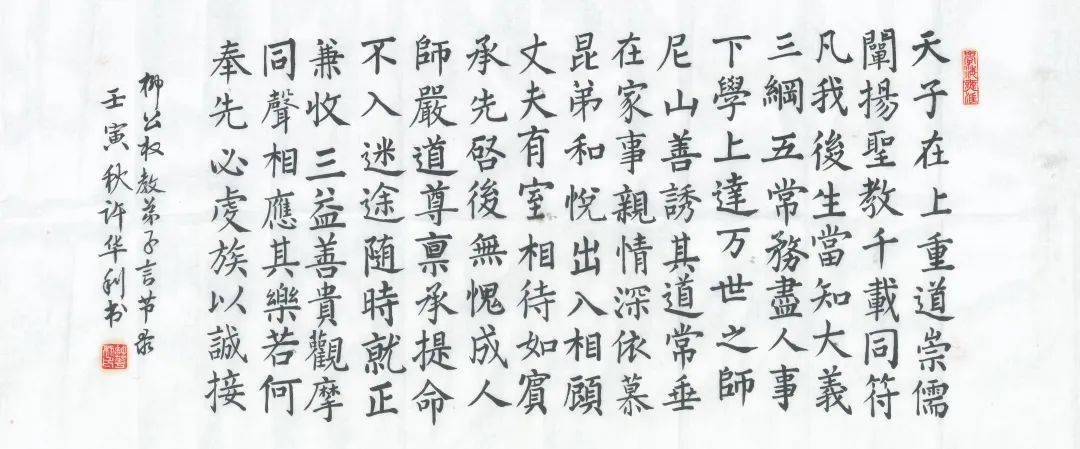 天子在上重道崇儒
闡揚聖教千載同符
凡我後生當知大義
三綱五常務盡人事
下學上達万世之師
尼山善誘其道常垂
在家事親情深依慕
昆弟和悅出入相顧
丈夫有室相待如賓
承先啓後無愧成人
師嚴道尊禀承提命
不入迷途随時就正
兼收三益善貴觀摩
同聲相應其樂若何
奉先必虔族以誠接
柳公权教弟子言节录
壬寅秋许华利书